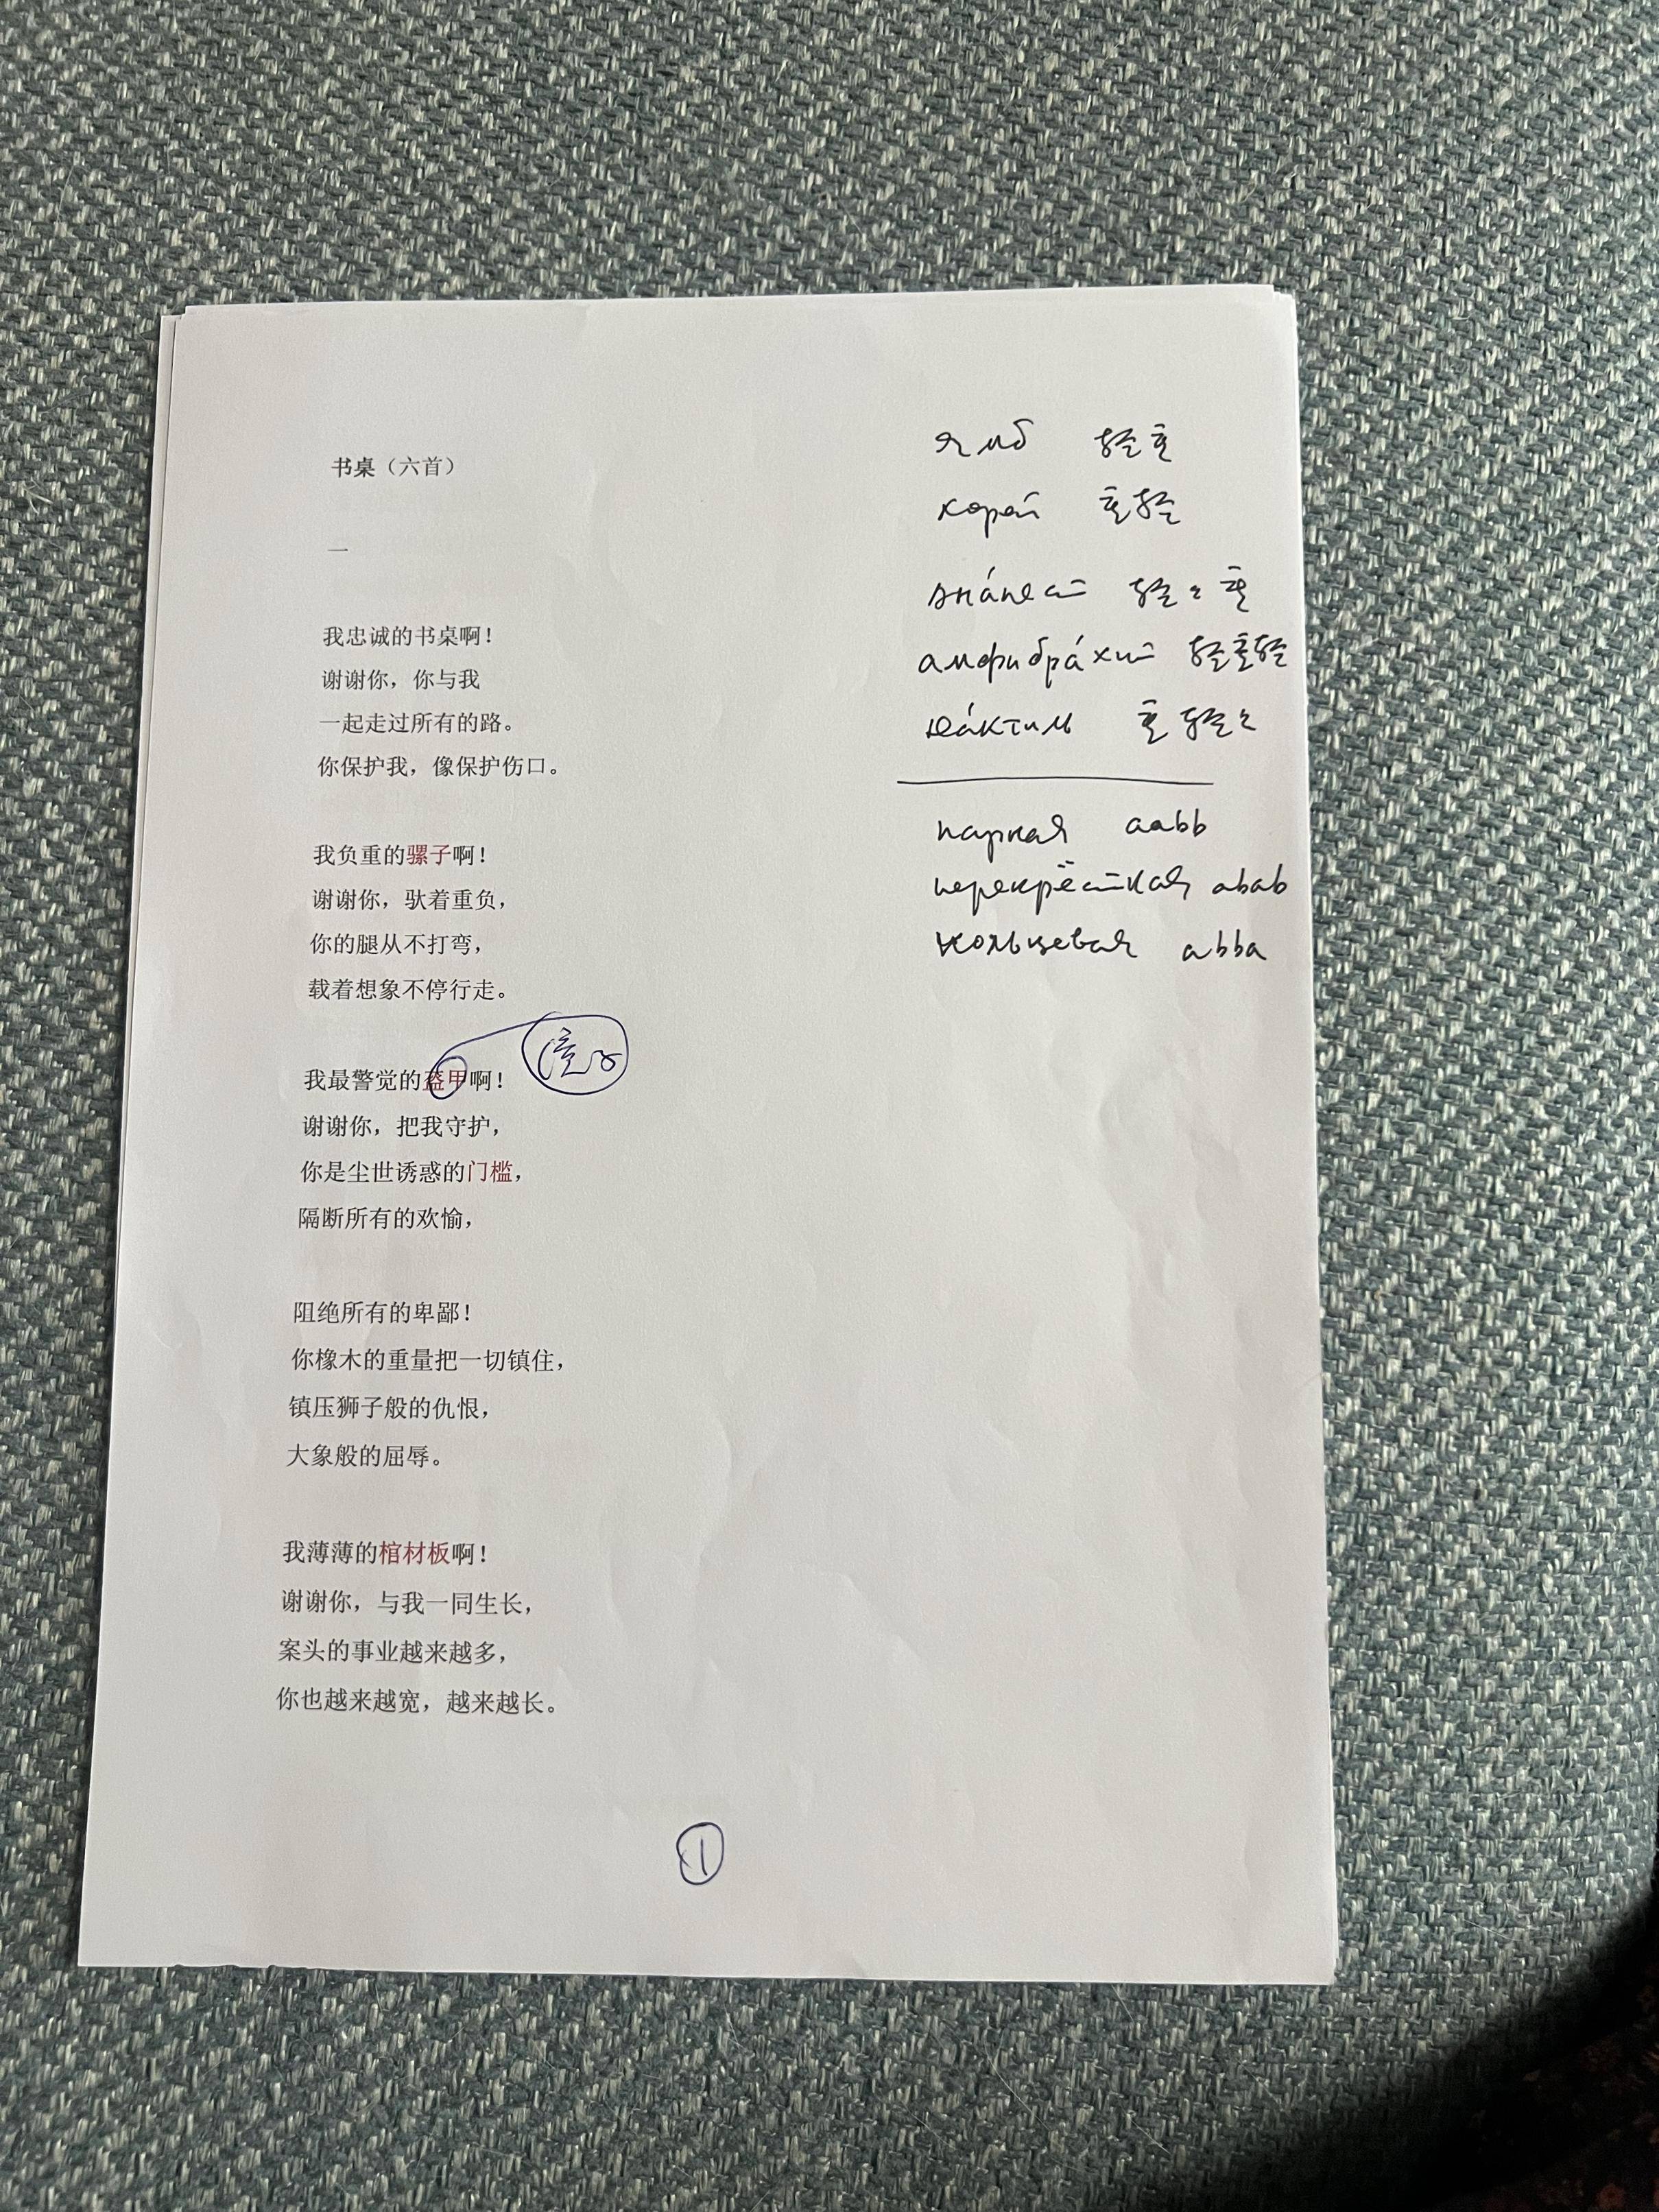 书桌（六首）
一
我忠诚的书桌啊！
谢谢你，你与我
一起走过所有的路。
你保护我，像保护伤口。
我负重的骡子啊！
谢谢你，驮着重负，
你的腿从不打弯，
载着想象不停行走。
我最警觉的盔甲啊！
谢谢你，把我守护，
你是尘世诱惑的门槛，
隔断所有的欢愉，
阻绝所有的卑鄙！
你橡木的重量把一切镇住，
镇压狮子般的仇恨，
大象般的屈辱。
我薄薄的棺材板啊！
谢谢你，与我一同生长，
案头的事业越来越多，
你也越来越宽，越来越长。
1
ямб 轻重
хорей 重轻
ана́пест 轻々重
амфибра́хий 轻重轻
да́ктиль 重轻々
парная aabb
перекрёстная abab
кольцевая abba